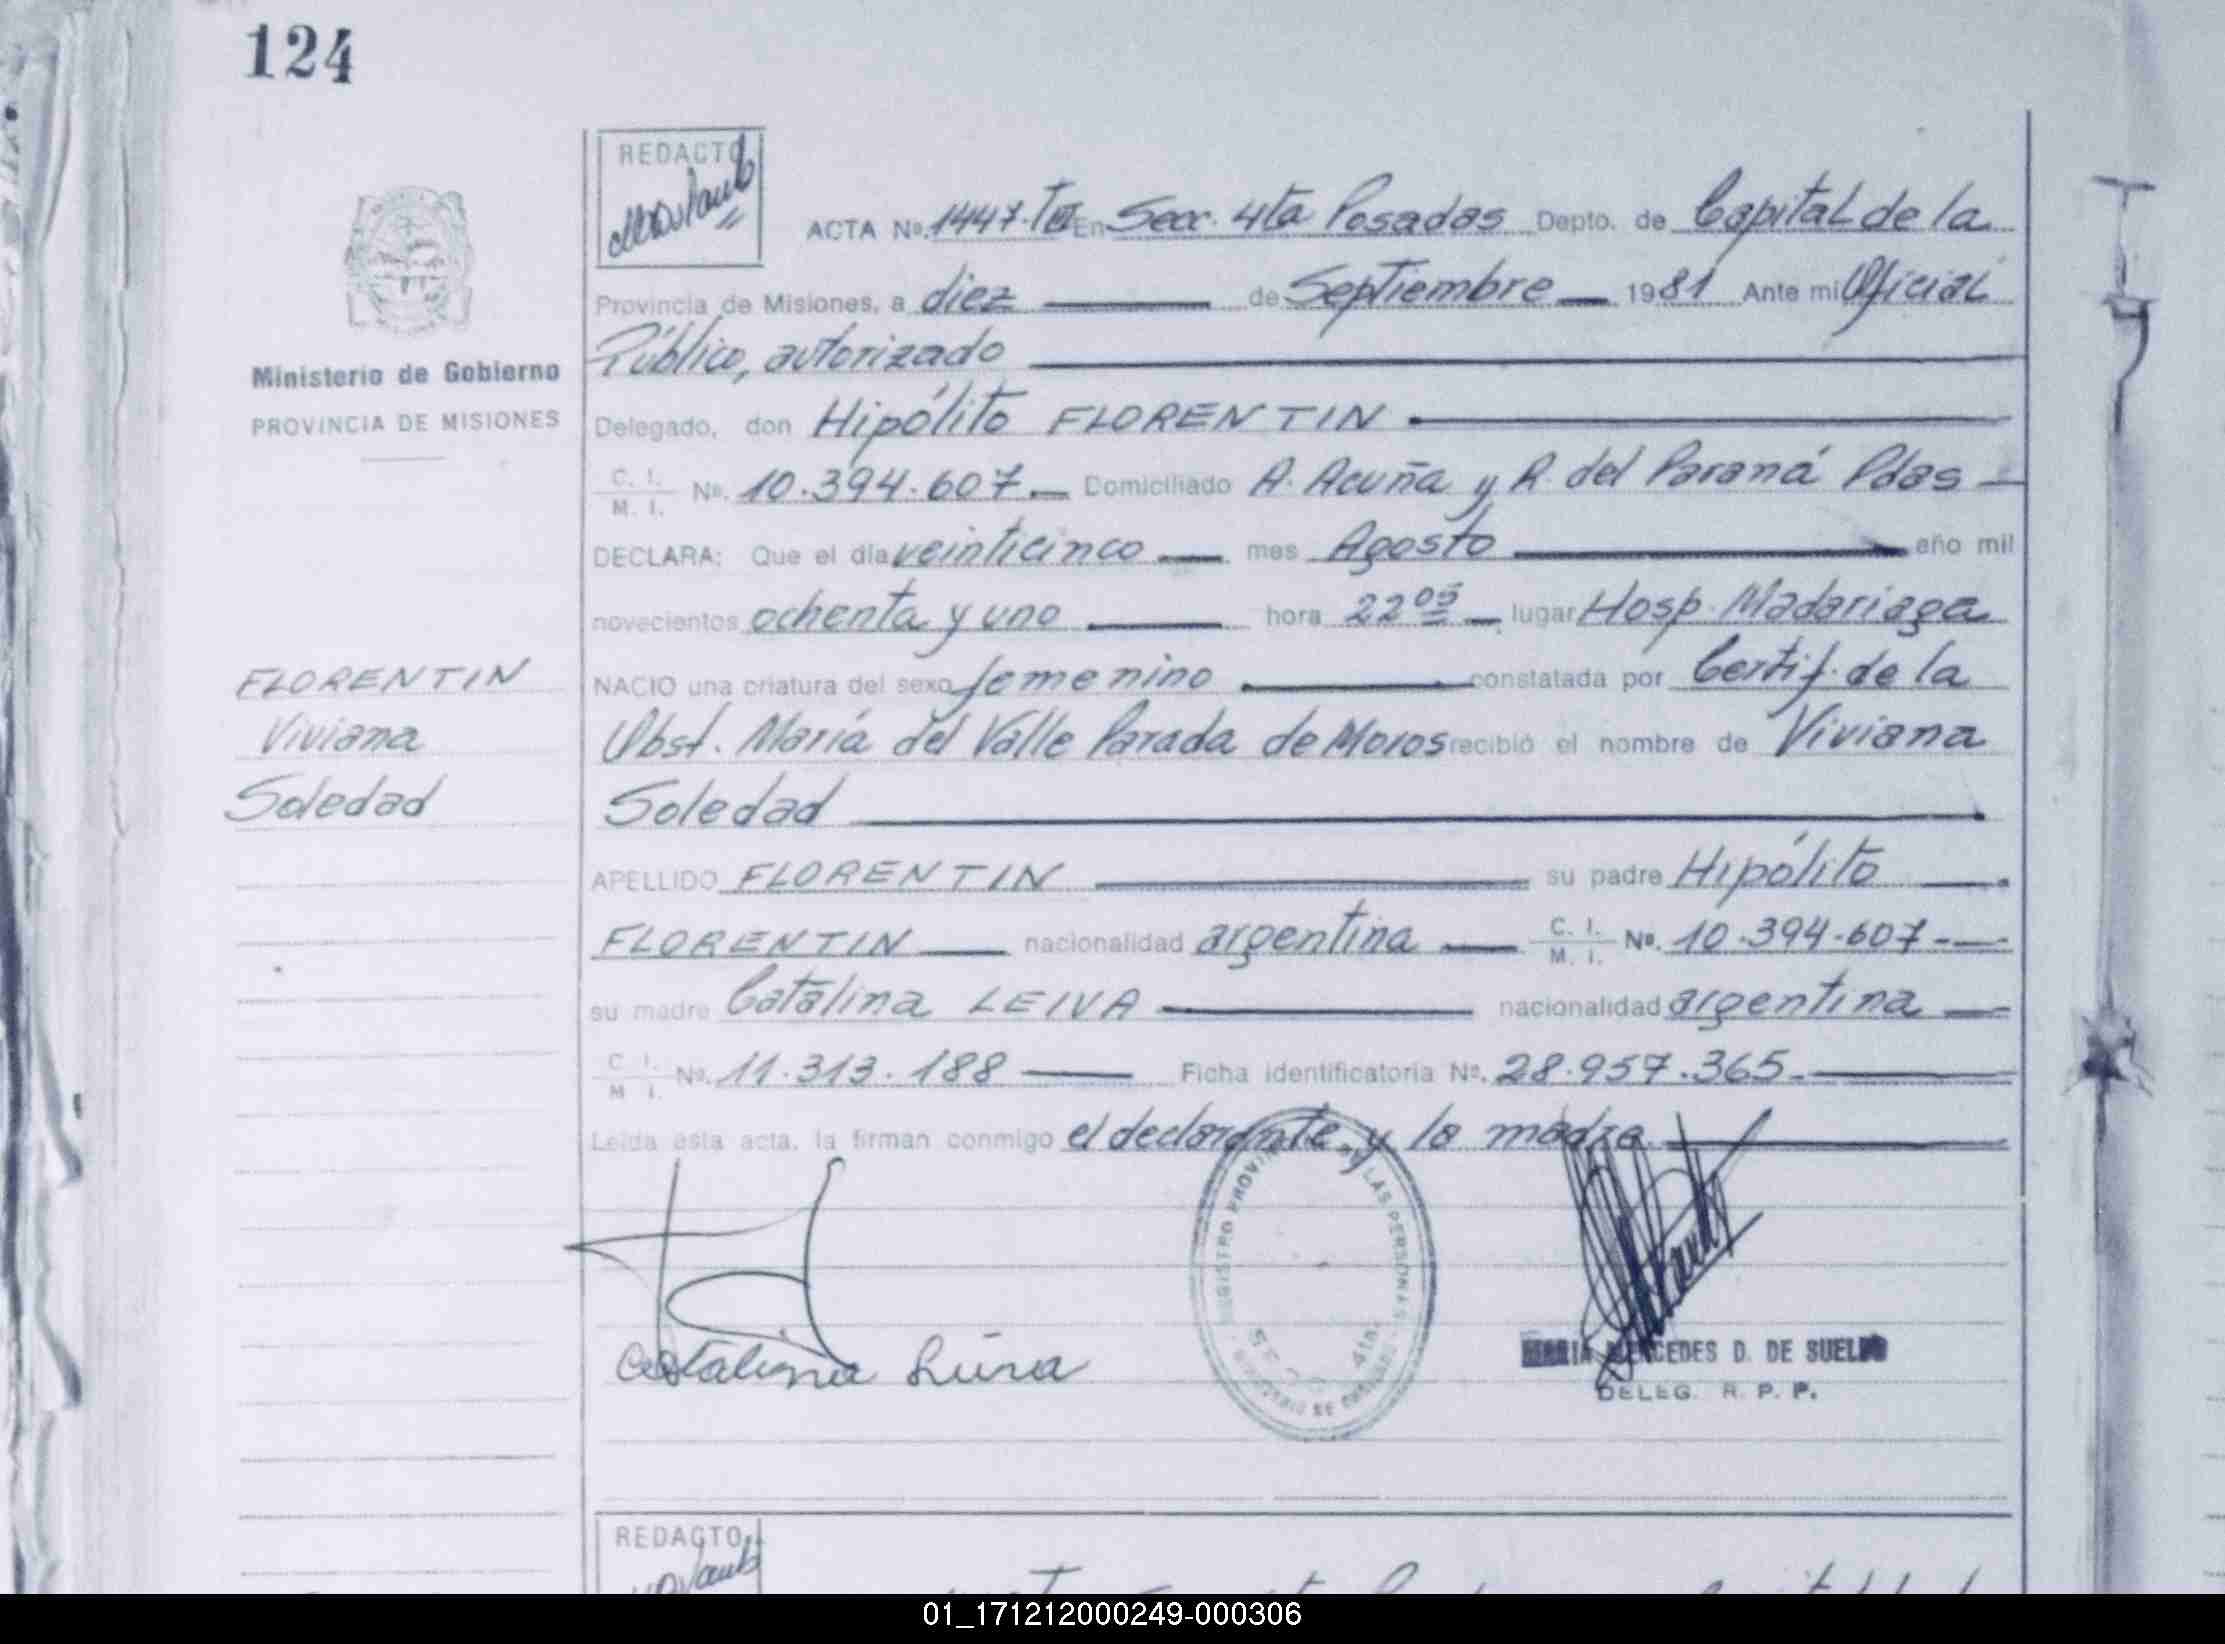 124
REDACTO
ACTA Nº. 1447. En Secc. 4ta Posadas Depto. de Capital de la
Provincia de Misiones, a diez de Septiembre 1981 Ante mi Oficial
Público, autorizado
Ministerio de Gobierno
PROVINCIA DE MISIONES
Delegado, don Hipólito FLORENTIN
C. I. M. I. Nº. 10.394.607 Domiciliado A. Acuña y R. del Paraná Pdas
DECLARA: Que el día veinticinco mes Agosto año mil
novecientos ochenta y uno hora 22 05 lugar Hosp. Madariaga
FLORENTIN
Viviana
Soledad
NACIO una criatura del sexo femenino constatada por Certif. de la
Obst. María del Valle Parada de Moros recibió el nombre de Viviana
Soledad
APELLIDO FLORENTIN su padre Hipólito
FLORENTIN nacionalidad argentina C. I. M. I. Nº. 10.394.607
su madre Catalina LEIVA nacionalidad argentina
C. I. M. I. Nº. 11.313.188 Ficha identificatoria Nº. 28.957.365
Leída esta acta, la firman conmigo el declarante y la madre
REGISTRO PROVINCIAL DE LAS PERSONAS
SECC. 4ta.
Catalina
MARIA MERCEDES D. DE SUELDO
DELEG. R. P. P.
REDACTO
01_171212000249-000306